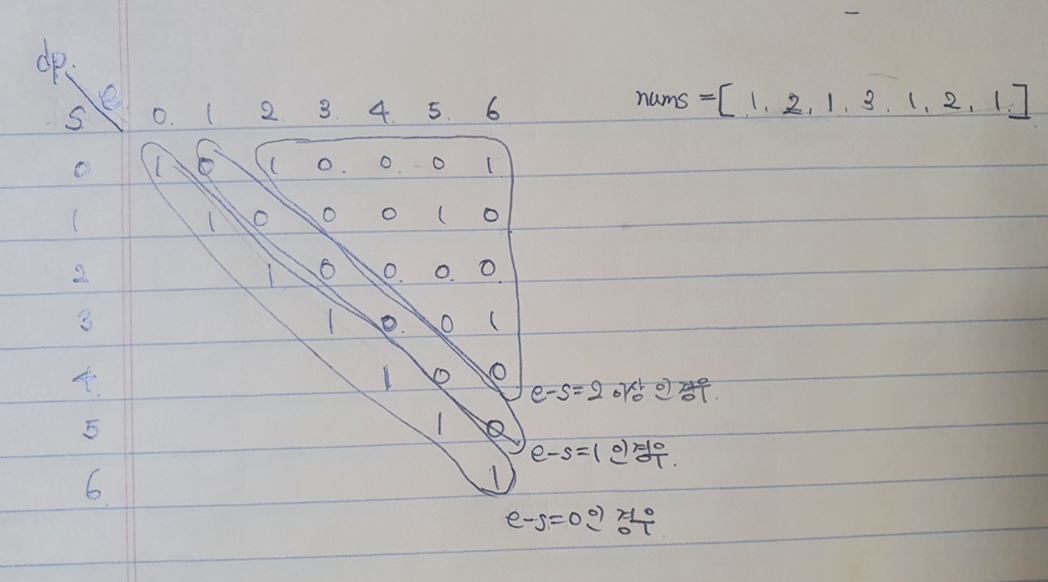 dp.
e
S 0. 1 2 3. 4. 5 6 nums = [ 1. 2, 1. 3. 1, 2, 1. ]
0 1 0 1 0. 0. 0 1
1 1 0 0 0 1 0
2 1 0 0. 0. 0
3 1 0. 0 1
4 1 0 0
e-s=2 이상 인 경우.
5 1 0
e-s=1 인경우.
6 1
e-s=0 인 경우